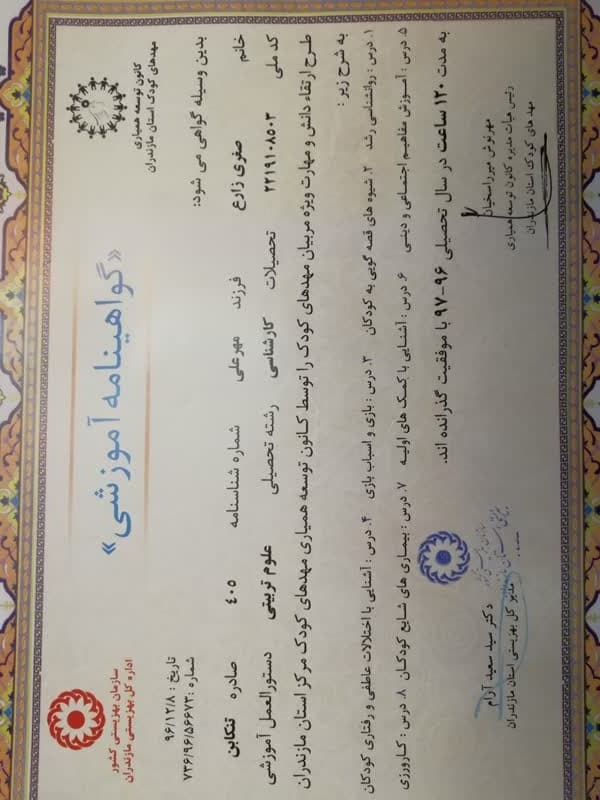 سازمان بهزیستی کشور
اداره کل بهزیستی مازندران
«گواهینامه آموزشی»
کانون توسعه همیاری
مهدهای کودک استان مازندران
تاریخ : ۹۶/۱۲/۸
شماره : ۷۳۶/۹۶/۵۶۶۷۳
بدین وسیله گواهی می شود:
خانم صغری زارع فرزند مهرعلی شماره شناسنامه ٤٠٥ صادره تنکابن
کد ملی ۲۲۱۹۱۰۸۵۰۳ تحصیلات کارشناسی رشته تحصیلی علوم تربیتی دستورالعمل آموزشی
طرح ارتقاء دانش و مهارت ویژه مربیان مهدهای کودک را توسط کانون توسعه همیاری مهدهای کودک مرکز استان مازندران
به شرح زیر :
۱. درس : روانشناسی رشد ۲. شیوه های قصه گویی به کودکان ۳. درس : بازی و اسباب بازی ۴. درس : آشنایی با اختلالات عاطفی و رفتاری کودکان
۵. درس : آموزش مفاهیم اجتماعی و دینی ۶. درس : آشنایی با کمک های اولیه ۷. درس : بیماری های شایع کودکان ۸. درس : کارورزی
به مدت ۱۲۰ ساعت در سال تحصیلی ۹۶-۹۷ با موفقیت گذرانده اند.
مهرنوش میرزاسخیان
رئیس هیات مدیره کانون توسعه همیاری
مهد های کودک استان مازندران
دکتر سید سعید آرام
مدیر کل بهزیستی استان مازندران